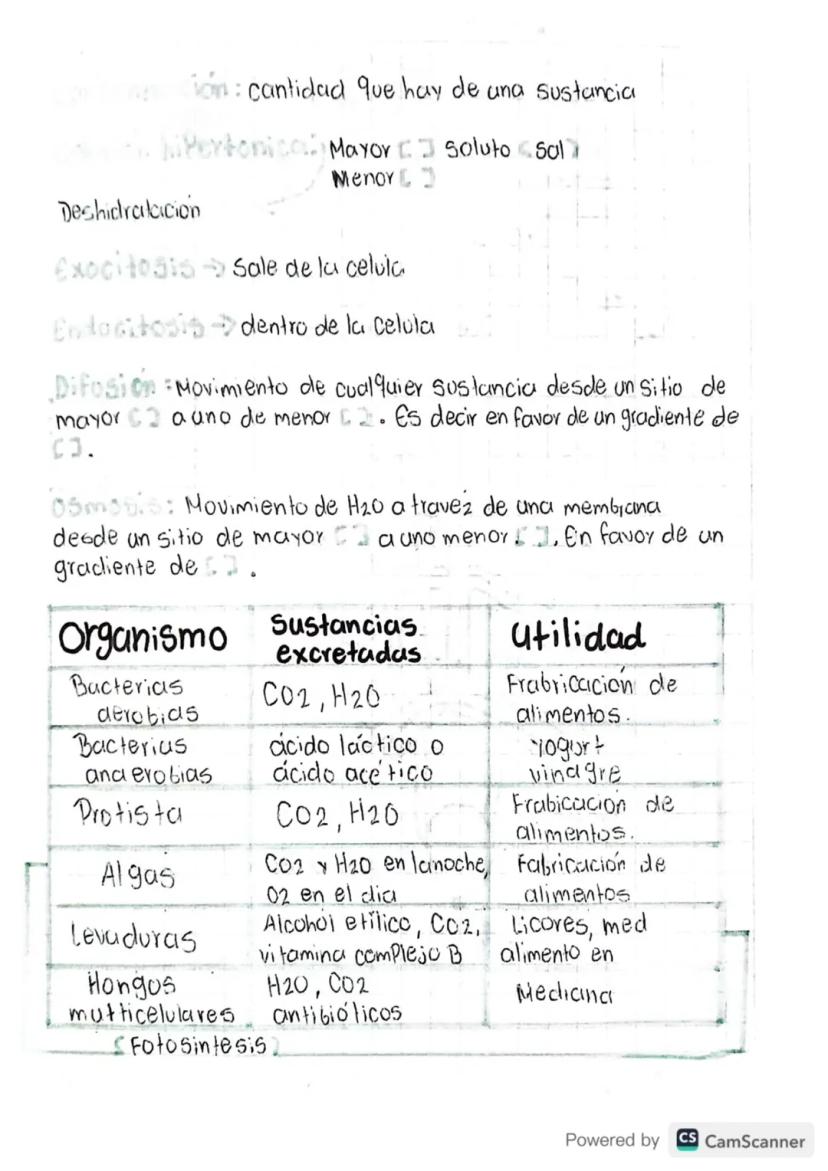 ión: cantidad que hay de una sustancia
hipertonica: Mayor [ ] soluto (sal)
Menor [ ]
Deshidratación
Exocitosis → Sale de la celula
Endocitosis → dentro de la celula
Difusión: Movimiento de cualquier sustancia desde un sitio de
mayor [ ] a uno de menor [ ]. Es decir en favor de un gradiente de
[ ].
Osmosis: Movimiento de H2O a travéz de una membrana
desde un sitio de mayor [ ] a uno menor [ ]. En favor de un
gradiente de [ ].
Organismo Sustancias excretadas Utilidad
Bacterias aerobias CO2, H2O Frabricación de alimentos.
Bacterias anaerobias ácido láctico o ácido acético yogurt vinagre
Protista CO2, H2O Frabicación de alimentos.
Algas CO2 y H2O en la noche, O2 en el dia Fabricación de alimentos
Levaduras Alcohol etílico, CO2, vitamina complejo B Licores, med alimento en
Hongos multicelulares H2O, CO2 antibiólicos Medicina
[Fotosintesis]
Powered by CS CamScanner